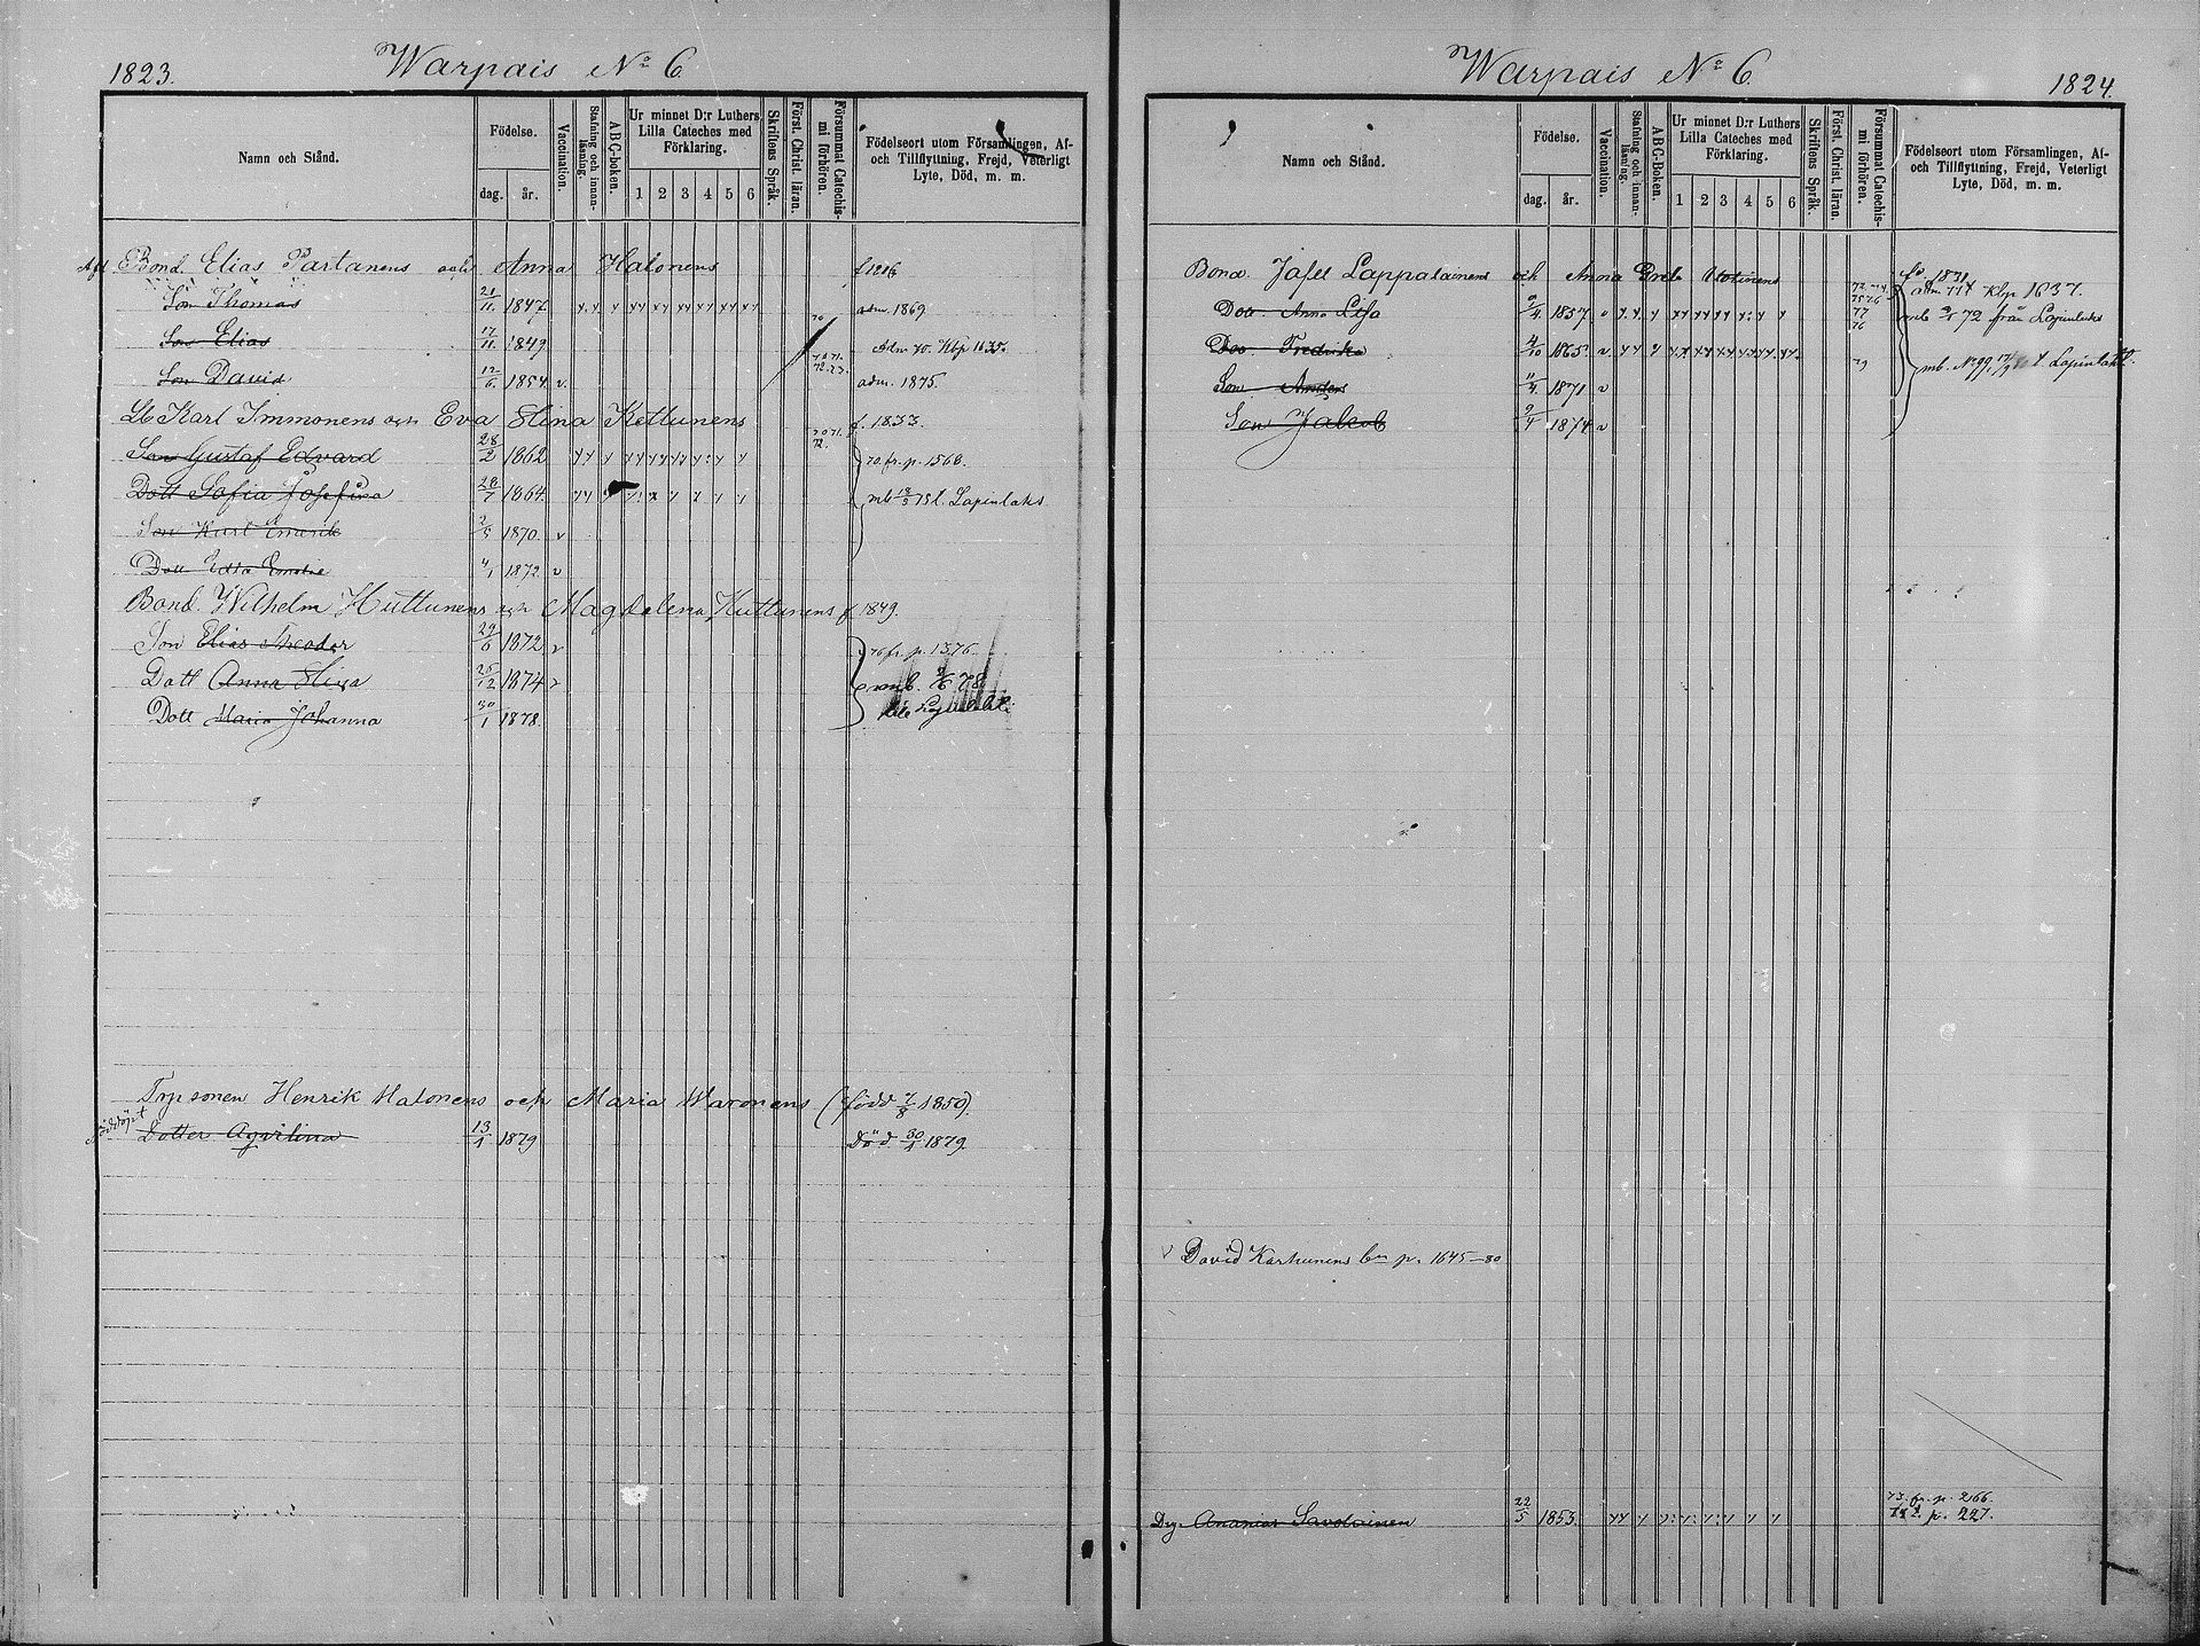 1823.
Warpais No 6
Namn och Stånd.
Födelse.
dag.
år.
Vaccination.
Stafning och innan-
läsning.
ABC-boken.
Ur minnet D:r Luthers
Lilla Cateches med
Förklaring.
1 2 3 4 5 6
Skriftens Språk.
Först. Christ. läran.
Försummat Catechis-
mi förhören.
Födelseort utom Församlingen, Af-
och Tillflyttning, Frejd, Veterligt
Lyte, Död, m. m.
Bond. Elias Partanens och Anna Halonens
Son Thomas 21/11. 1847. adm. 1869
Son Elias 17/11. 1849. Adm 70. Kbp 1635.
Son David 12/6. 1854. v. adm. 1875.
Lb Karl Immonens och Eva Stina Kettunens f. 1833.
Son Gustaf Edvard 28/2 1862 70. fr. p. 1568.
Dott Sofia Josefina 28/7 1864. mb 18/3 75 t. Lapinlaks
Son Karl Emerik 2/5 1870. v
Dott Edla Emelie 4/1 1872. v
Bond. Wilhelm Huttunens och Magdalena Huttunens f 1849.
Son Elias Theodor 29/6 1872 v 76 fr. p. 1376
Dott Anna Stina 25/12 1874 v
Dott Maria Johanna 30/1 1878.
Trp sonen Henrik Halonens och Maria Waronens (född 7/8 1850).
Nöddöpt
Dotter Aqvilina 13/1 1879 Död 30/1 1879.
Warpais No 6
1824.
Namn och Stånd.
Födelse.
dag.
år.
Vaccination.
Stafning och innan-
läsning.
ABC-boken.
Ur minnet D:r Luthers
Lilla Cateches med
Förklaring.
1 2 3 4 5 6
Skriftens Språk.
Först. Christ. läran.
Försummat Catechis-
mi förhören.
Födelseort utom Församlingen, Af-
och Tillflyttning, Frejd, Veterligt
Lyte, Död, m. m.
Bond. Jafet Lappalainens och Anna Greta f. 1831
Dott. Anna Lisa 9/4. 1857 Kbp 1637.
72 från Lapinlaks
Dott. Fredrika 4/10 1865. v
Son Anders 11/4. 1871 v
Son Jakob 9/4 1874 v
David Karhunens bn p. 1645-80
Drg. Ananias Savolainen 22/5 1853. 73. fr. p. 266.
p. 227.